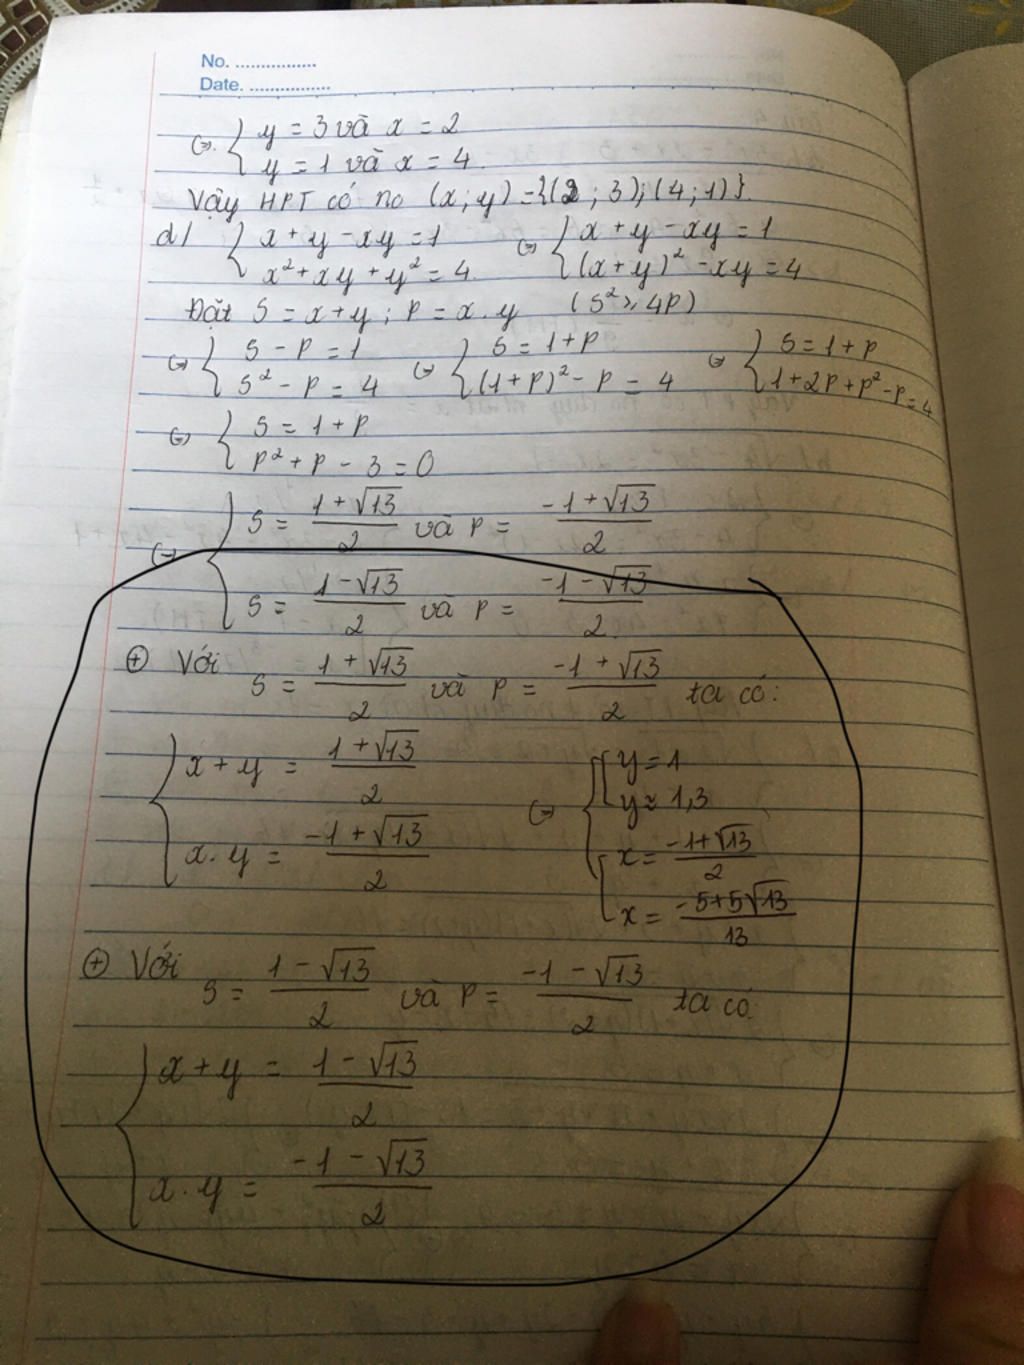 No. ................
Date. ................
(=) { y = 3 và x = 2
y = 1 và x = 4.
Vậy HPT có no (x ; y) = {(2 ; 3) ; (4 ; 1)}.
d/ { x + y - xy = 1 (=) { x + y - xy = 1
x² + xy + y² = 4. (x + y)² - xy = 4
Đặt S = x + y ; P = x . y (S² ≥ 4P)
(=) { S - P = 1 (=) { S = 1 + P (=) { S = 1 + P
S² - P = 4 (1 + P)² - P = 4 1 + 2P + P² - P = 4
(=) { S = 1 + P
P² + P - 3 = 0
(=) { S = (1 + √13)/2 và P = (-1 + √13)/2
S = (1 - √13)/2 và P = (-1 - √13)/2.
⊕ Với S = (1 + √13)/2 và P = (-1 + √13)/2 ta có:
{ x + y = (1 + √13)/2 (=) { [ y = 1
y ≈ 1,3
x . y = (-1 + √13)/2 [ x = (-1 + √13)/2
x = (-5 + 5√13)/13
⊕ Với S = (1 - √13)/2 và P = (-1 - √13)/2 ta có:
{ x + y = (1 - √13)/2
x . y = (-1 - √13)/2